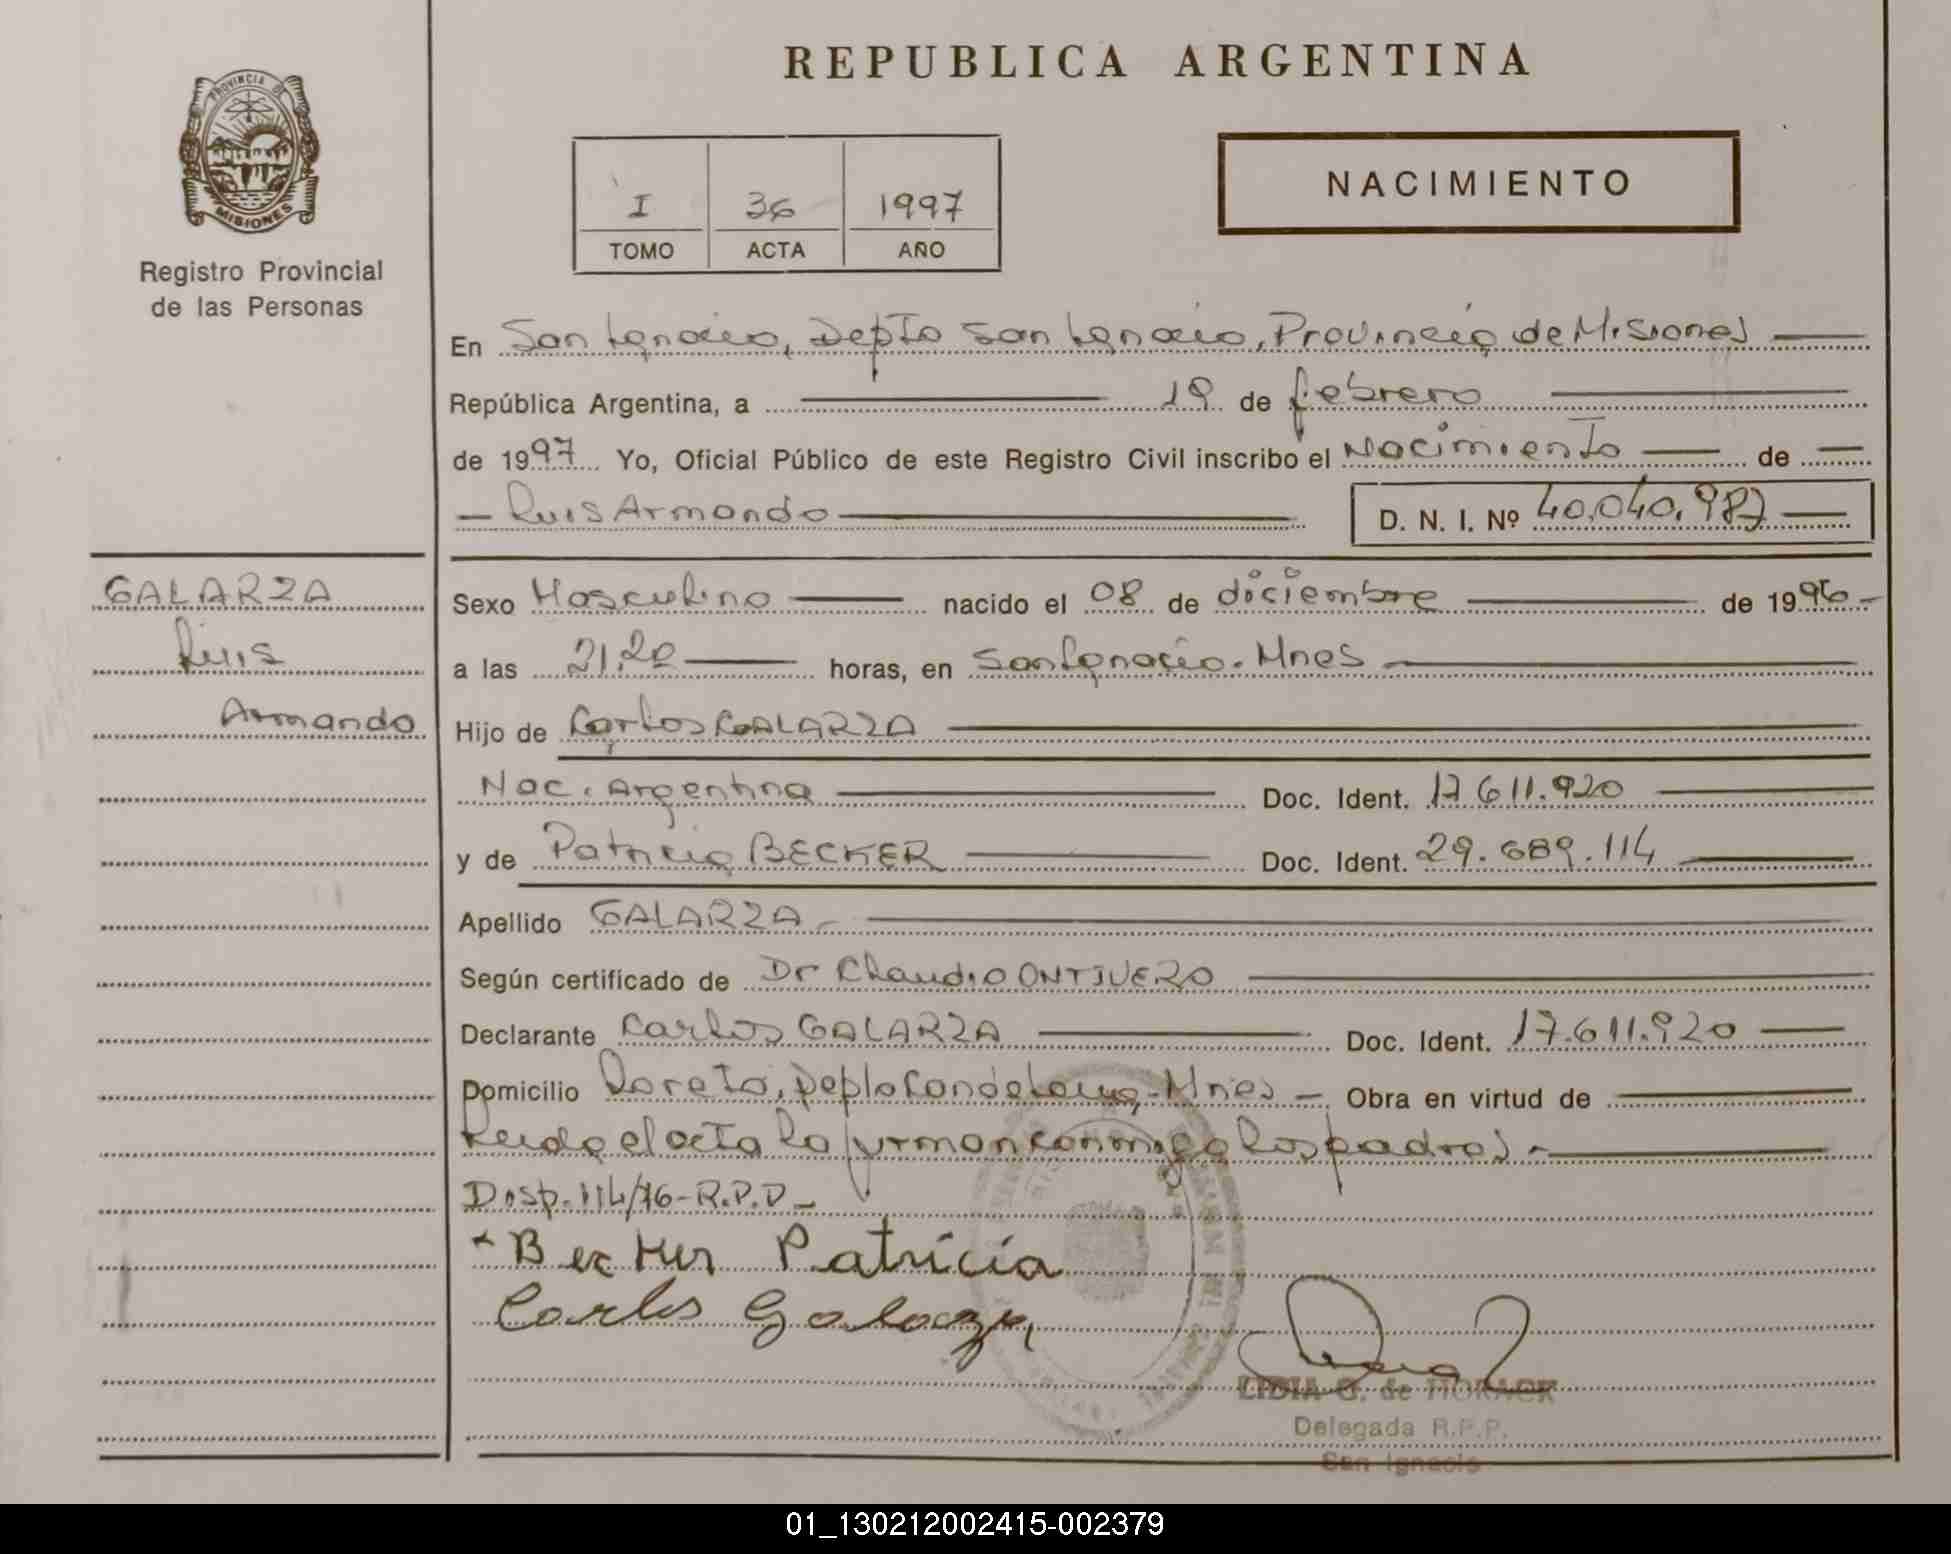 REPUBLICA ARGENTINA
PROVINCIA DE
MISIONES
Registro Provincial
de las Personas
I 36 1997
TOMO ACTA AÑO
NACIMIENTO
En San Ignacio, Depto San Ignacio, Provincia de Misiones
República Argentina, a 19 de febrero
de 1997 Yo, Oficial Público de este Registro Civil inscribo el Nacimiento de
Luis Armando D. N. I. Nº 40.040.987
GALARZA
Luis
Armando
Sexo Masculino nacido el 08 de diciembre de 1996
a las 21.20 horas, en San Ignacio. Mnes
Hijo de Carlos GALARZA
Nac. Argentina Doc. Ident. 17.611.920
y de Patricia BECKER Doc. Ident. 29.689.114
Apellido GALARZA
Según certificado de Dr Claudio ONTIVERO
Declarante Carlos GALARZA Doc. Ident. 17.611.920
Domicilio Loreto, Depto Candelaria - Mnes - Obra en virtud de
Leida el acta la firman conmigo los padres.-
Disp. 114/76-R.P.P-
Becker Patricia
Carlos Galarza
LIDIA G. de HORACK
Delegada R.P.P.
San Ignacio
01_130212002415-002379